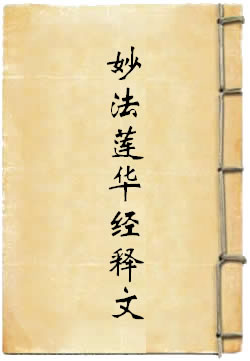 妙法莲华经释文